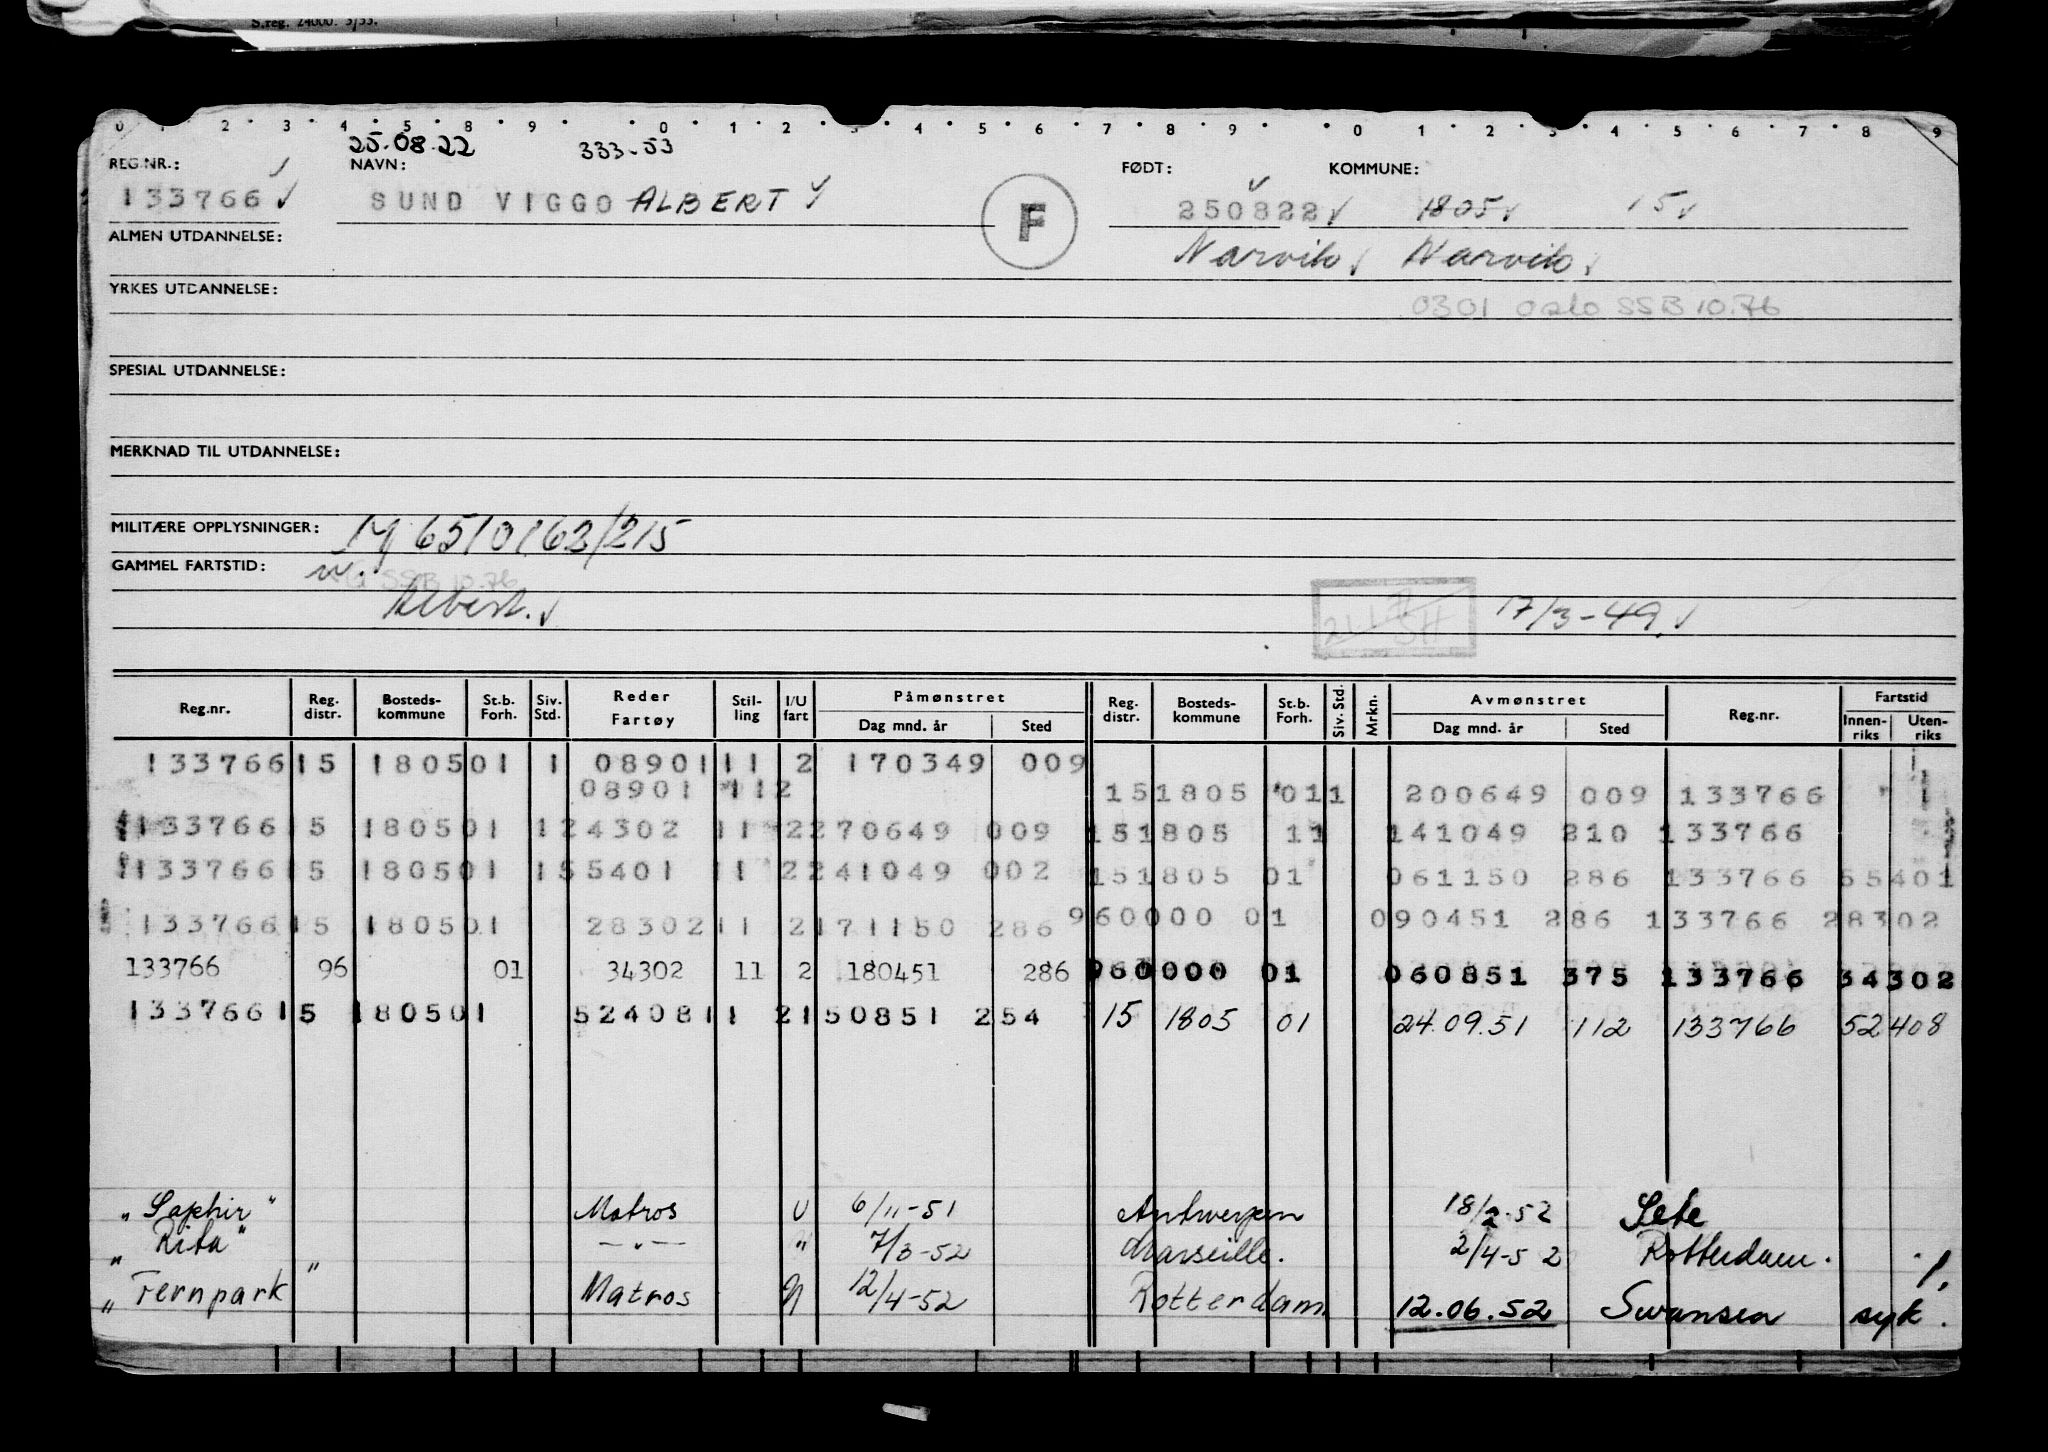 S.reg. 24000. 3/53.
0 1 2 3 4 5 8 9 0 1 2 3 4 5 6 7 8 9 0 1 2 3 4 5 6 7 8 9
25.08.22 333-53
REG.NR.: NAVN: FØDT: KOMMUNE:
133766 SUND VIGGO ALBERT F 250822 1805 15
ALMEN UTDANNELSE: Narvik Narvik
YRKES UTDANNELSE: 0301 Oslo SSB 10.76
SPESIAL UTDANNELSE:
MERKNAD TIL UTDANNELSE:
MILITÆRE OPPLYSNINGER: 6510163/215
GAMMEL FARTSTID: SSB 10.76
Albert. 17/3-49.
Reg.nr. Reg. distr. Bosteds- kommune St.b. Forh. Siv. Std. Reder Fartøy Stil- ling I/U fart Påmønstret Dag mnd. år Sted Reg. distr. Bosteds- kommune St.b. Forh. Siv. Std. Mrkn. Avmønstret Dag mnd. år Sted Reg.nr. Fartstid Innen- riks Uten- riks
133766 15 1805 01 1 08901 11 2 170349 009
08901 112 15 1805 011 200649 009 133766
133766 15 1805 01 1 24302 11 2 270649 009 15 1805 11 141049 210 133766
133766 15 1805 01 1 55401 11 2 241049 002 15 1805 01 061150 286 133766 55401
133766 15 1805 01 28302 11 2 171150 286 960000 01 090451 286 133766 28302
133766 96 01 34302 11 2 180451 286 960000 01 060851 375 133766 34302
133766 15 1805 01 52408 11 2 150851 254 15 1805 01 24.09.51 112 133766 52408
"Saphir" Matros U 6/11-51 Antwerpen 18/2-52 Sete
"Rita" —"— " 7/3-52 Marseille. 2/4-52 Rotterdam.
"Fernpark" Matros U 12/4-52 Rotterdam 12.06.52 Swansea syk.